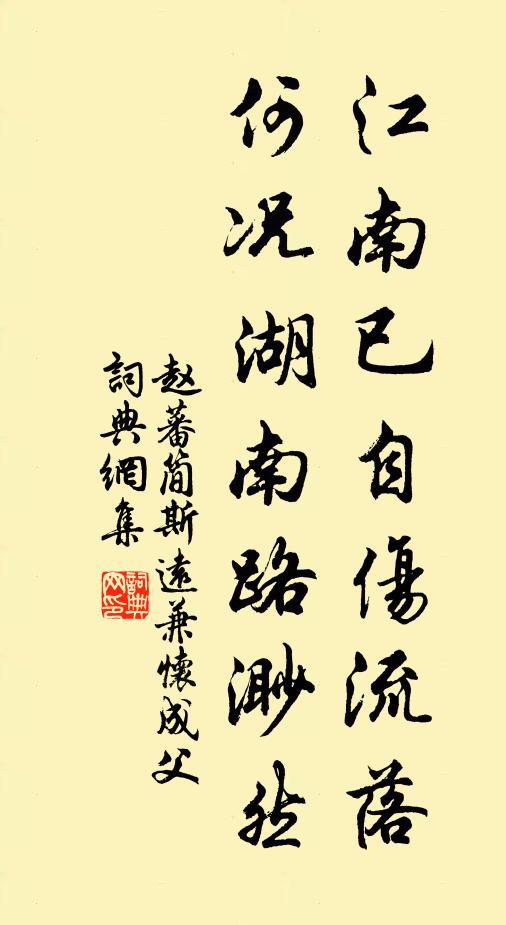 江南已自傷流落
何况湖南路渺然
赵蕃简斯遠兼懷成父
詞典網集
詞典
网印